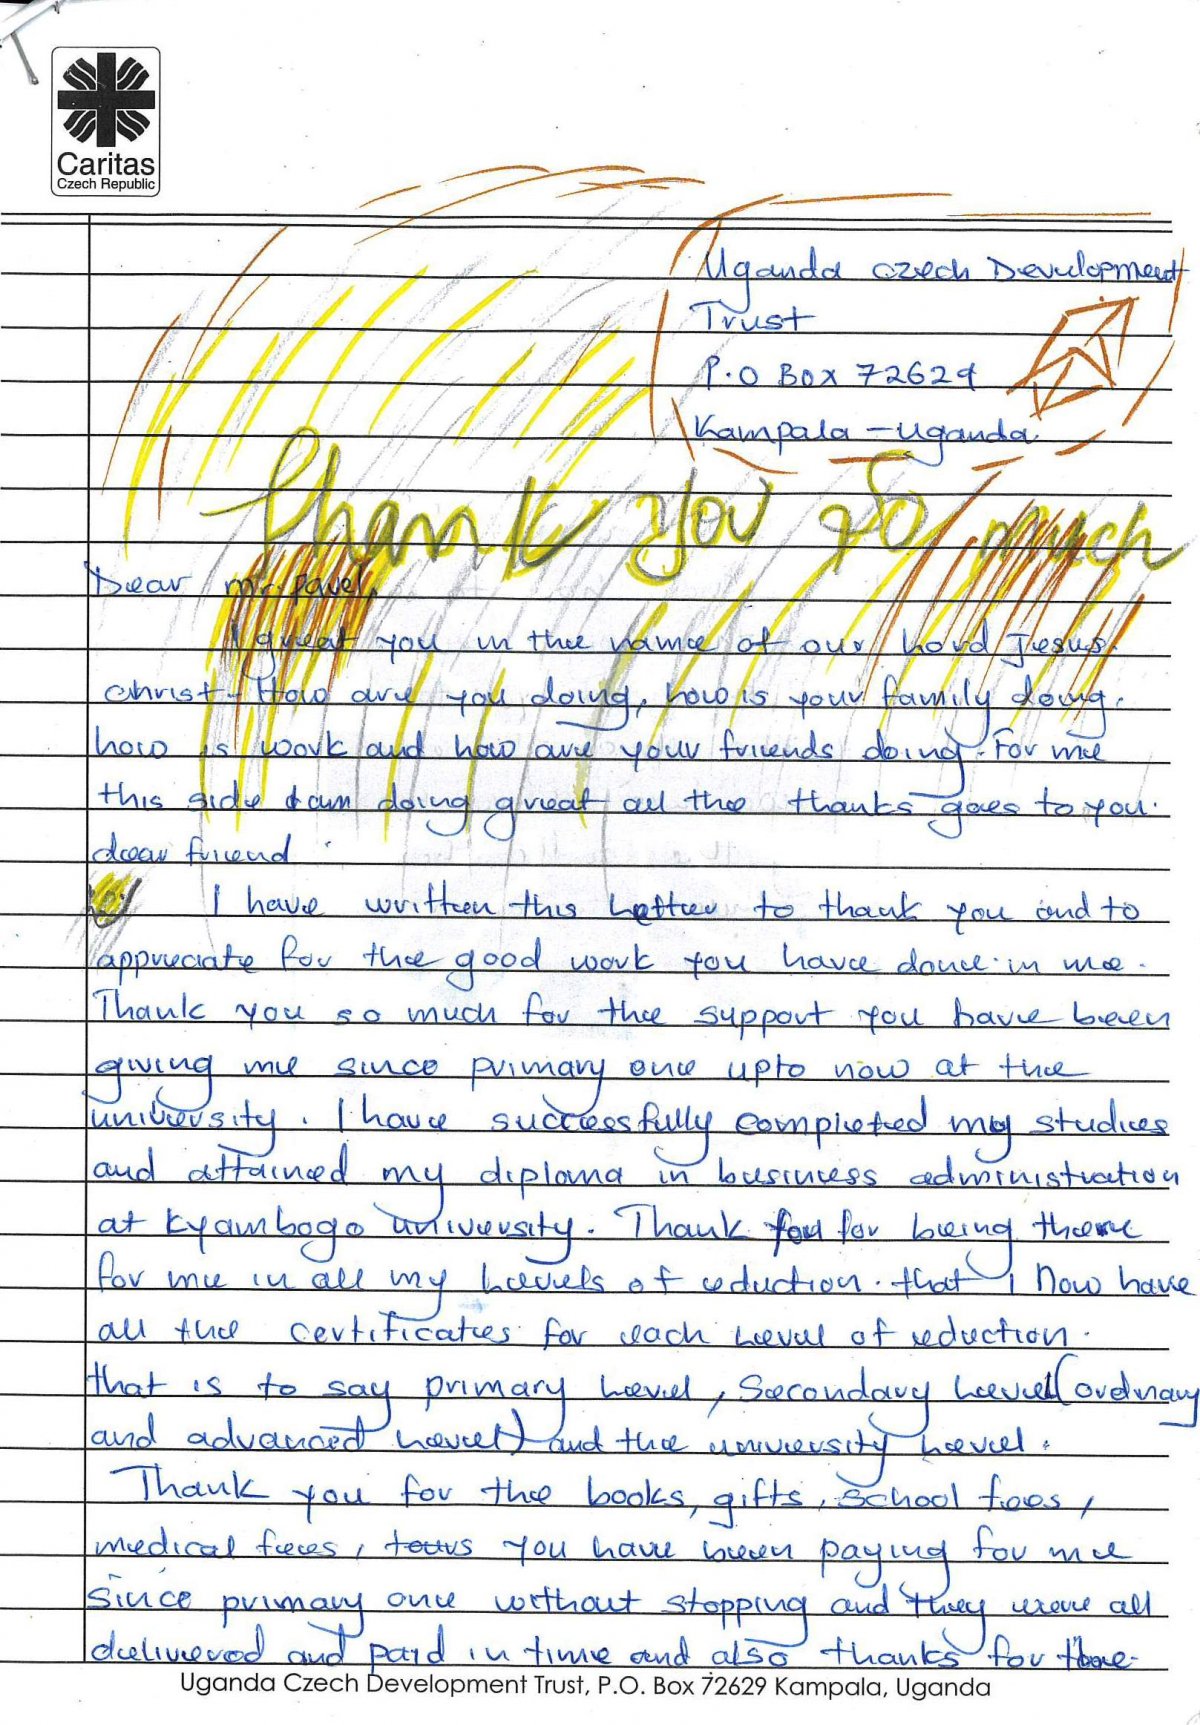 Caritas
Czech Republic
Uganda Czech Development
Trust
P.O Box 72629
Kampala - Uganda
Thank you so much
Dear mr. Pavel,
I great you in the name of our Lord Jesus.
Christ - How are you doing, how is your family doing.
how is work and how are your friends doing. For me
this side I am doing great all the thanks goes to you.
dear friend.
I have written this Letter to thank you and to
appreciate for the good work you have done in me.
Thank you so much for the support you have been
giving me since primary one upto now at the
university. I have successfully completed my studies
and attained my diploma in business administration
at Kyambogo university. Thank you for being there
for me in all my levels of eduction. that I Now have
all the certificates for each level of eduction.
that is to say primary level, Secondary level (ordinary
and advanced level) and the university level.
Thank you for the books, gifts, school fees,
medical fees, tours you have been paying for me
since primary one without stopping and they were all
delivered and paid in time and also thanks for the
Uganda Czech Development Trust, P.O. Box 72629 Kampala, Uganda